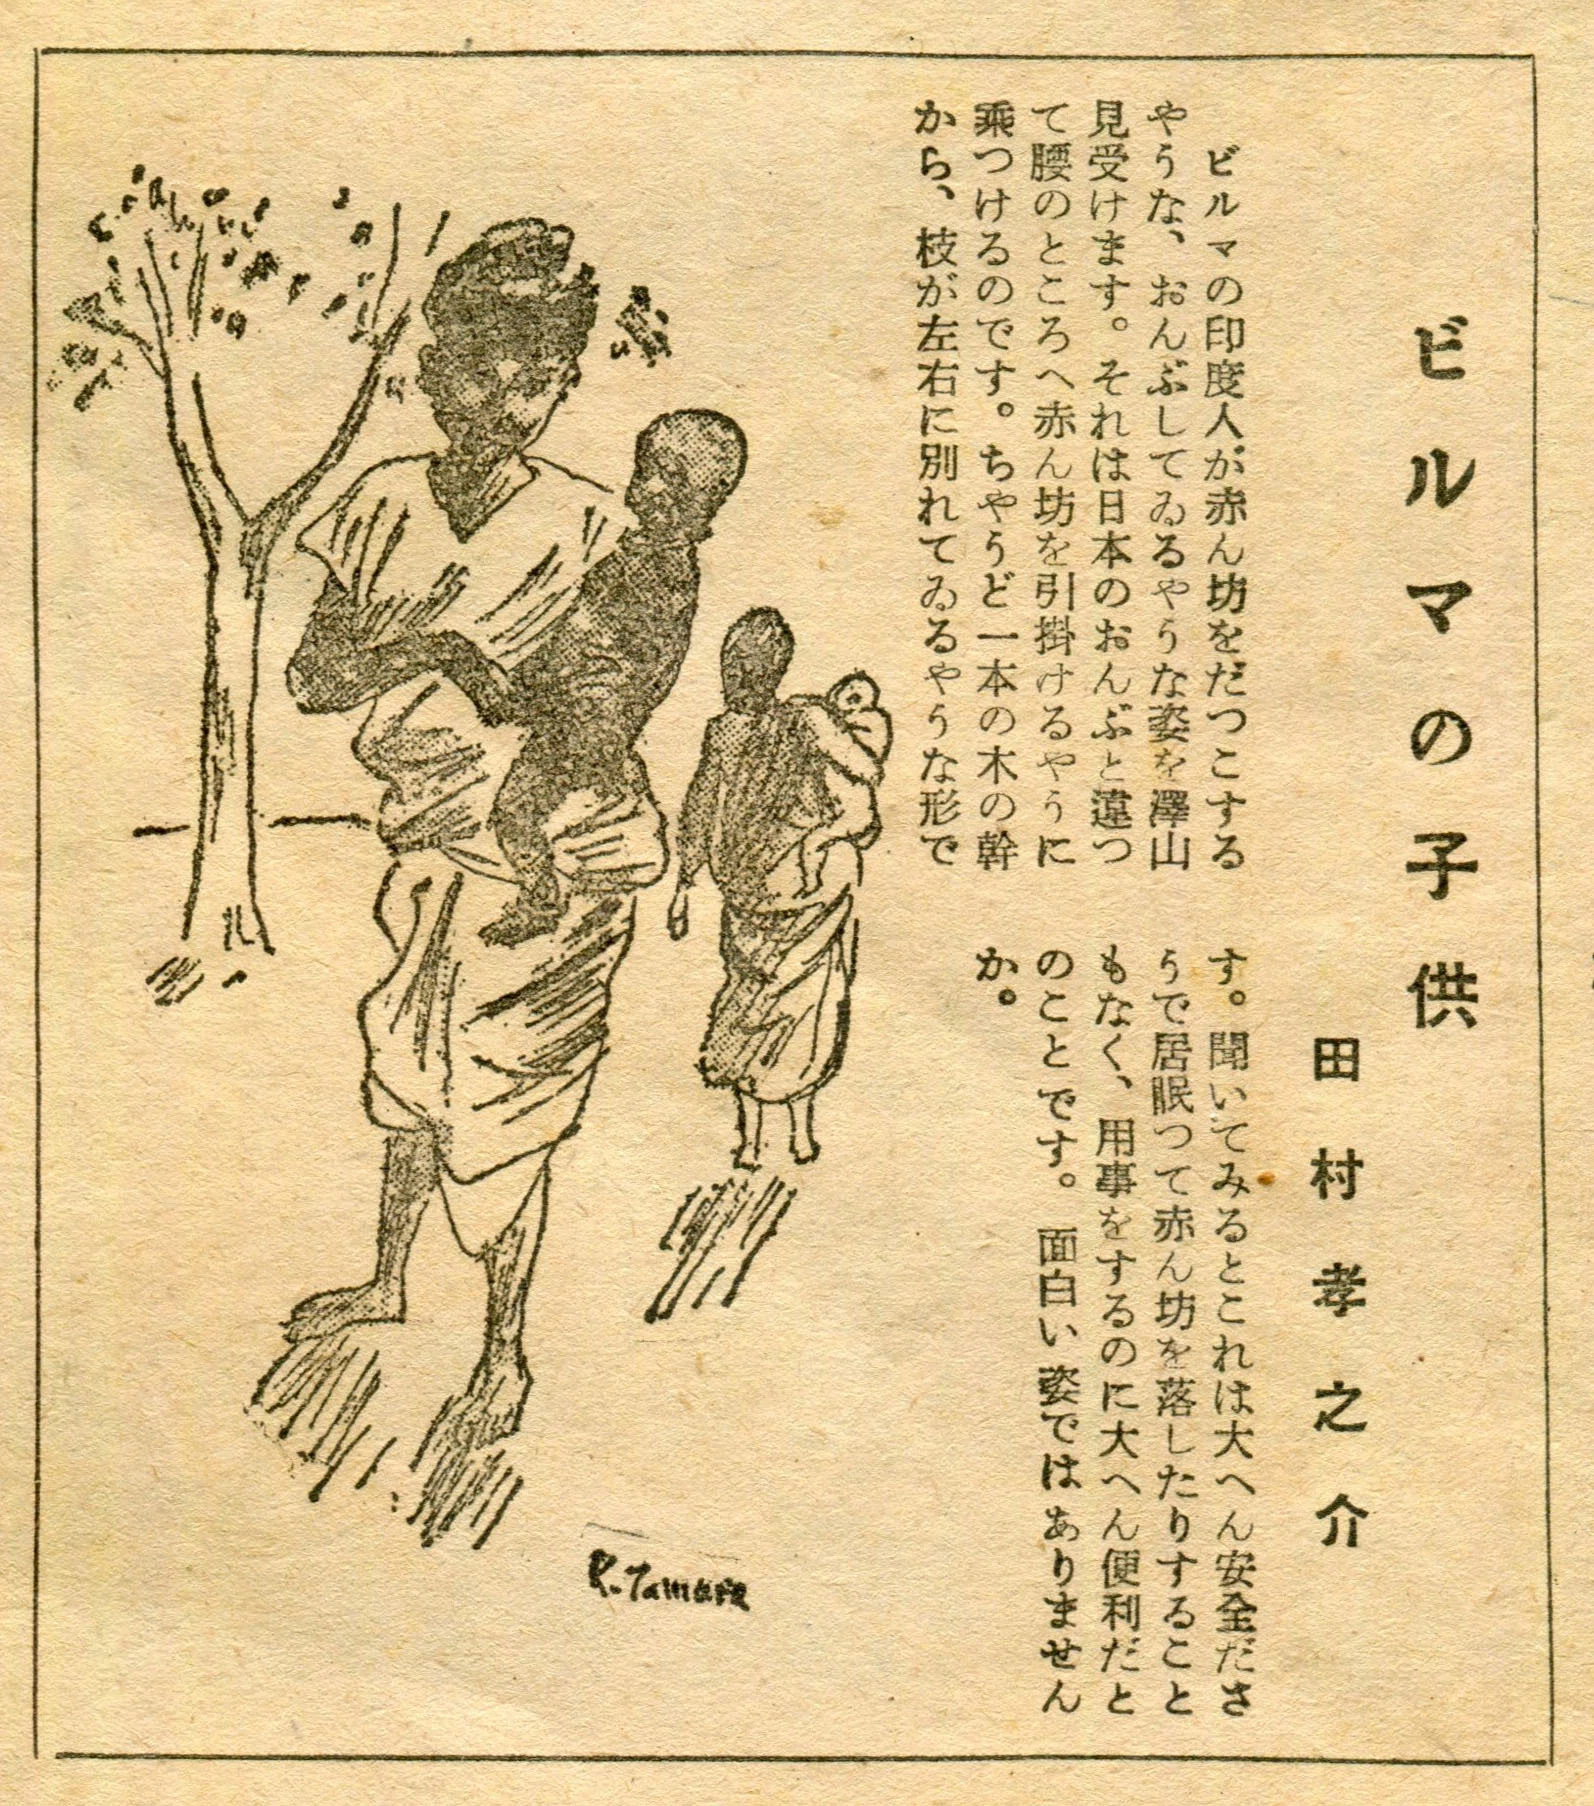 ビルマの子供
田村孝之介
ビルマの印度人が赤ん坊をだつこする
やうな、おんぶしてゐるやうな姿を澤山
見受けます。それは日本のおんぶと違つ
て腰のところへ赤ん坊を引掛けるやうに
乘つけるのです。ちやうど一本の木の幹
から、枝が左右に別れてゐるやうな形で
す。聞いてみるとこれは大へん安全ださ
うで居眠つて赤ん坊を落したりすること
もなく、用事をするのに大へん便利だと
のことです。面白い姿ではありません
か。
K.Tamura